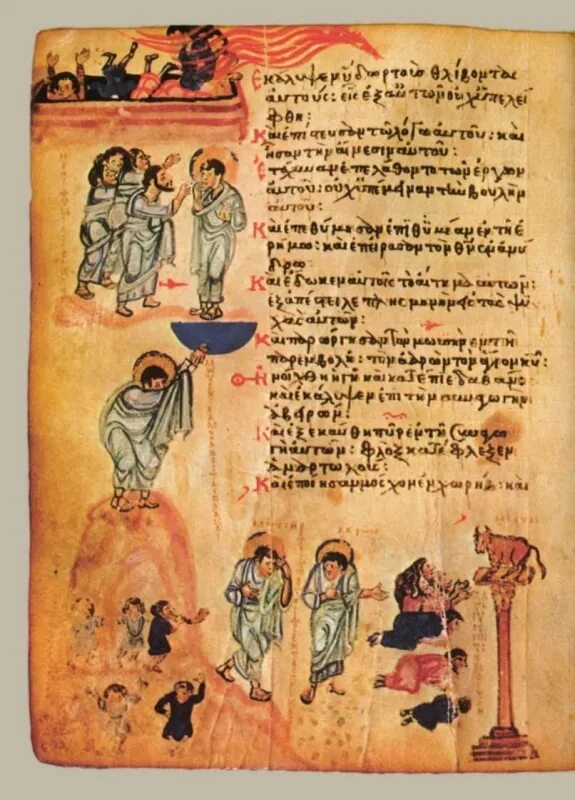 Ἐκάλυψεν ὕδωρ τοὺς θλίβοντας
αὐτούς: εἷς ἐξ αὐτῶν οὐχ ὑπελεί
φθη:
Καὶ ἐπίστευσαν τῷ λόγῳ αὐτοῦ: καὶ
ᾖσαν τὴν αἴνεσιν αὐτοῦ:
Ἐτάχυναν ἐπελάθοντο τῶν ἔργων
αὐτοῦ: οὐχ ὑπέμειναν τὴν βουλὴν
αὐτοῦ:
Καὶ ἐπεθύμησαν ἐπιθυμίαν ἐν τῇ ἐ
ρήμῳ: καὶ ἐπείρασαν τὸν θν ἐν ἀνύ
δρῳ:
Καὶ ἔδωκεν αὐτοῖς τὸ αἴτημα αὐτῶν:
ἐξαπέστειλε πλησμονὴν εἰς τὰς ψυ
χὰς αὐτῶν:
Καὶ παρώργισαν τὸν μωυσῆν ἐν τῇ
παρεμβολῇ: τὸν ἀαρὼν τὸν ἅγιον κυ:
Ἠνοίχθη ἡ γῆ καὶ κατέπιε δαθάν:
καὶ ἐκάλυψεν ἐπὶ τὴν συναγωγὴν
ἀβειρών:
Καὶ ἐξεκαύθη πῦρ ἐν τῇ συναγω
γῇ αὐτῶν: φλὸξ κατέφλεξεν
ἁμαρτωλούς:
Καὶ ἐποίησαν μόσχον ἐν χωρήβ: καὶ